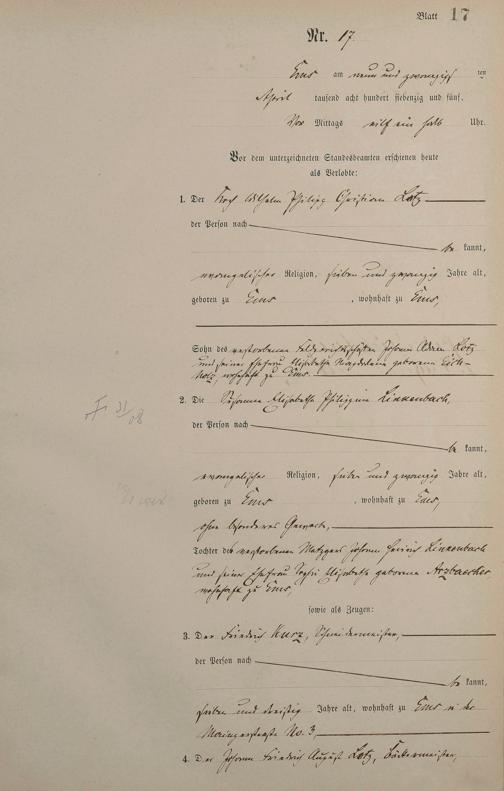 Blatt 17
Nr. 17
Ems am neun und zwanzigsten
April tausend acht hundert siebenzig und fünf,
Vor Mittags eilf ein halb Uhr.
Vor dem unterzeichneten Standesbeamten erschienen heute
als Verlobte:
1. Der Koch Wilhelm Philipp Christian Lotz
der Person nach
be kannt,
evangelischer Religion, sieben und zwanzig Jahre alt,
geboren zu Ems, wohnhaft zu Ems,
Sohn des verstorbenen Johann Adam Lotz
und seiner Ehefrau Elisabeth Magdalena geborene Eich-
holz, wohnhaft zu Ems.
2. Die Johanna Elisabetha Philippine Linkenbach,
der Person nach
be kannt,
evangelischer Religion, sieben und zwanzig Jahre alt,
geboren zu Ems, wohnhaft zu Ems,
ohne besonderes Gewerbe,
Tochter des verstorbenen Metzgers Johann Heinrich Linkenbach
und seiner Ehefrau Sophie Elisabeth geborene Arzbaecher
wohnhaft zu Ems,
sowie als Zeugen:
3. Der Friedrich Kurz, Schneidermeister,
der Person nach
be kannt,
sieben und dreißig Jahre alt, wohnhaft zu Ems in der
Mainzerstraße No. 3,
4. Der Johann Friedrich August Lotz, Bäckermeister,